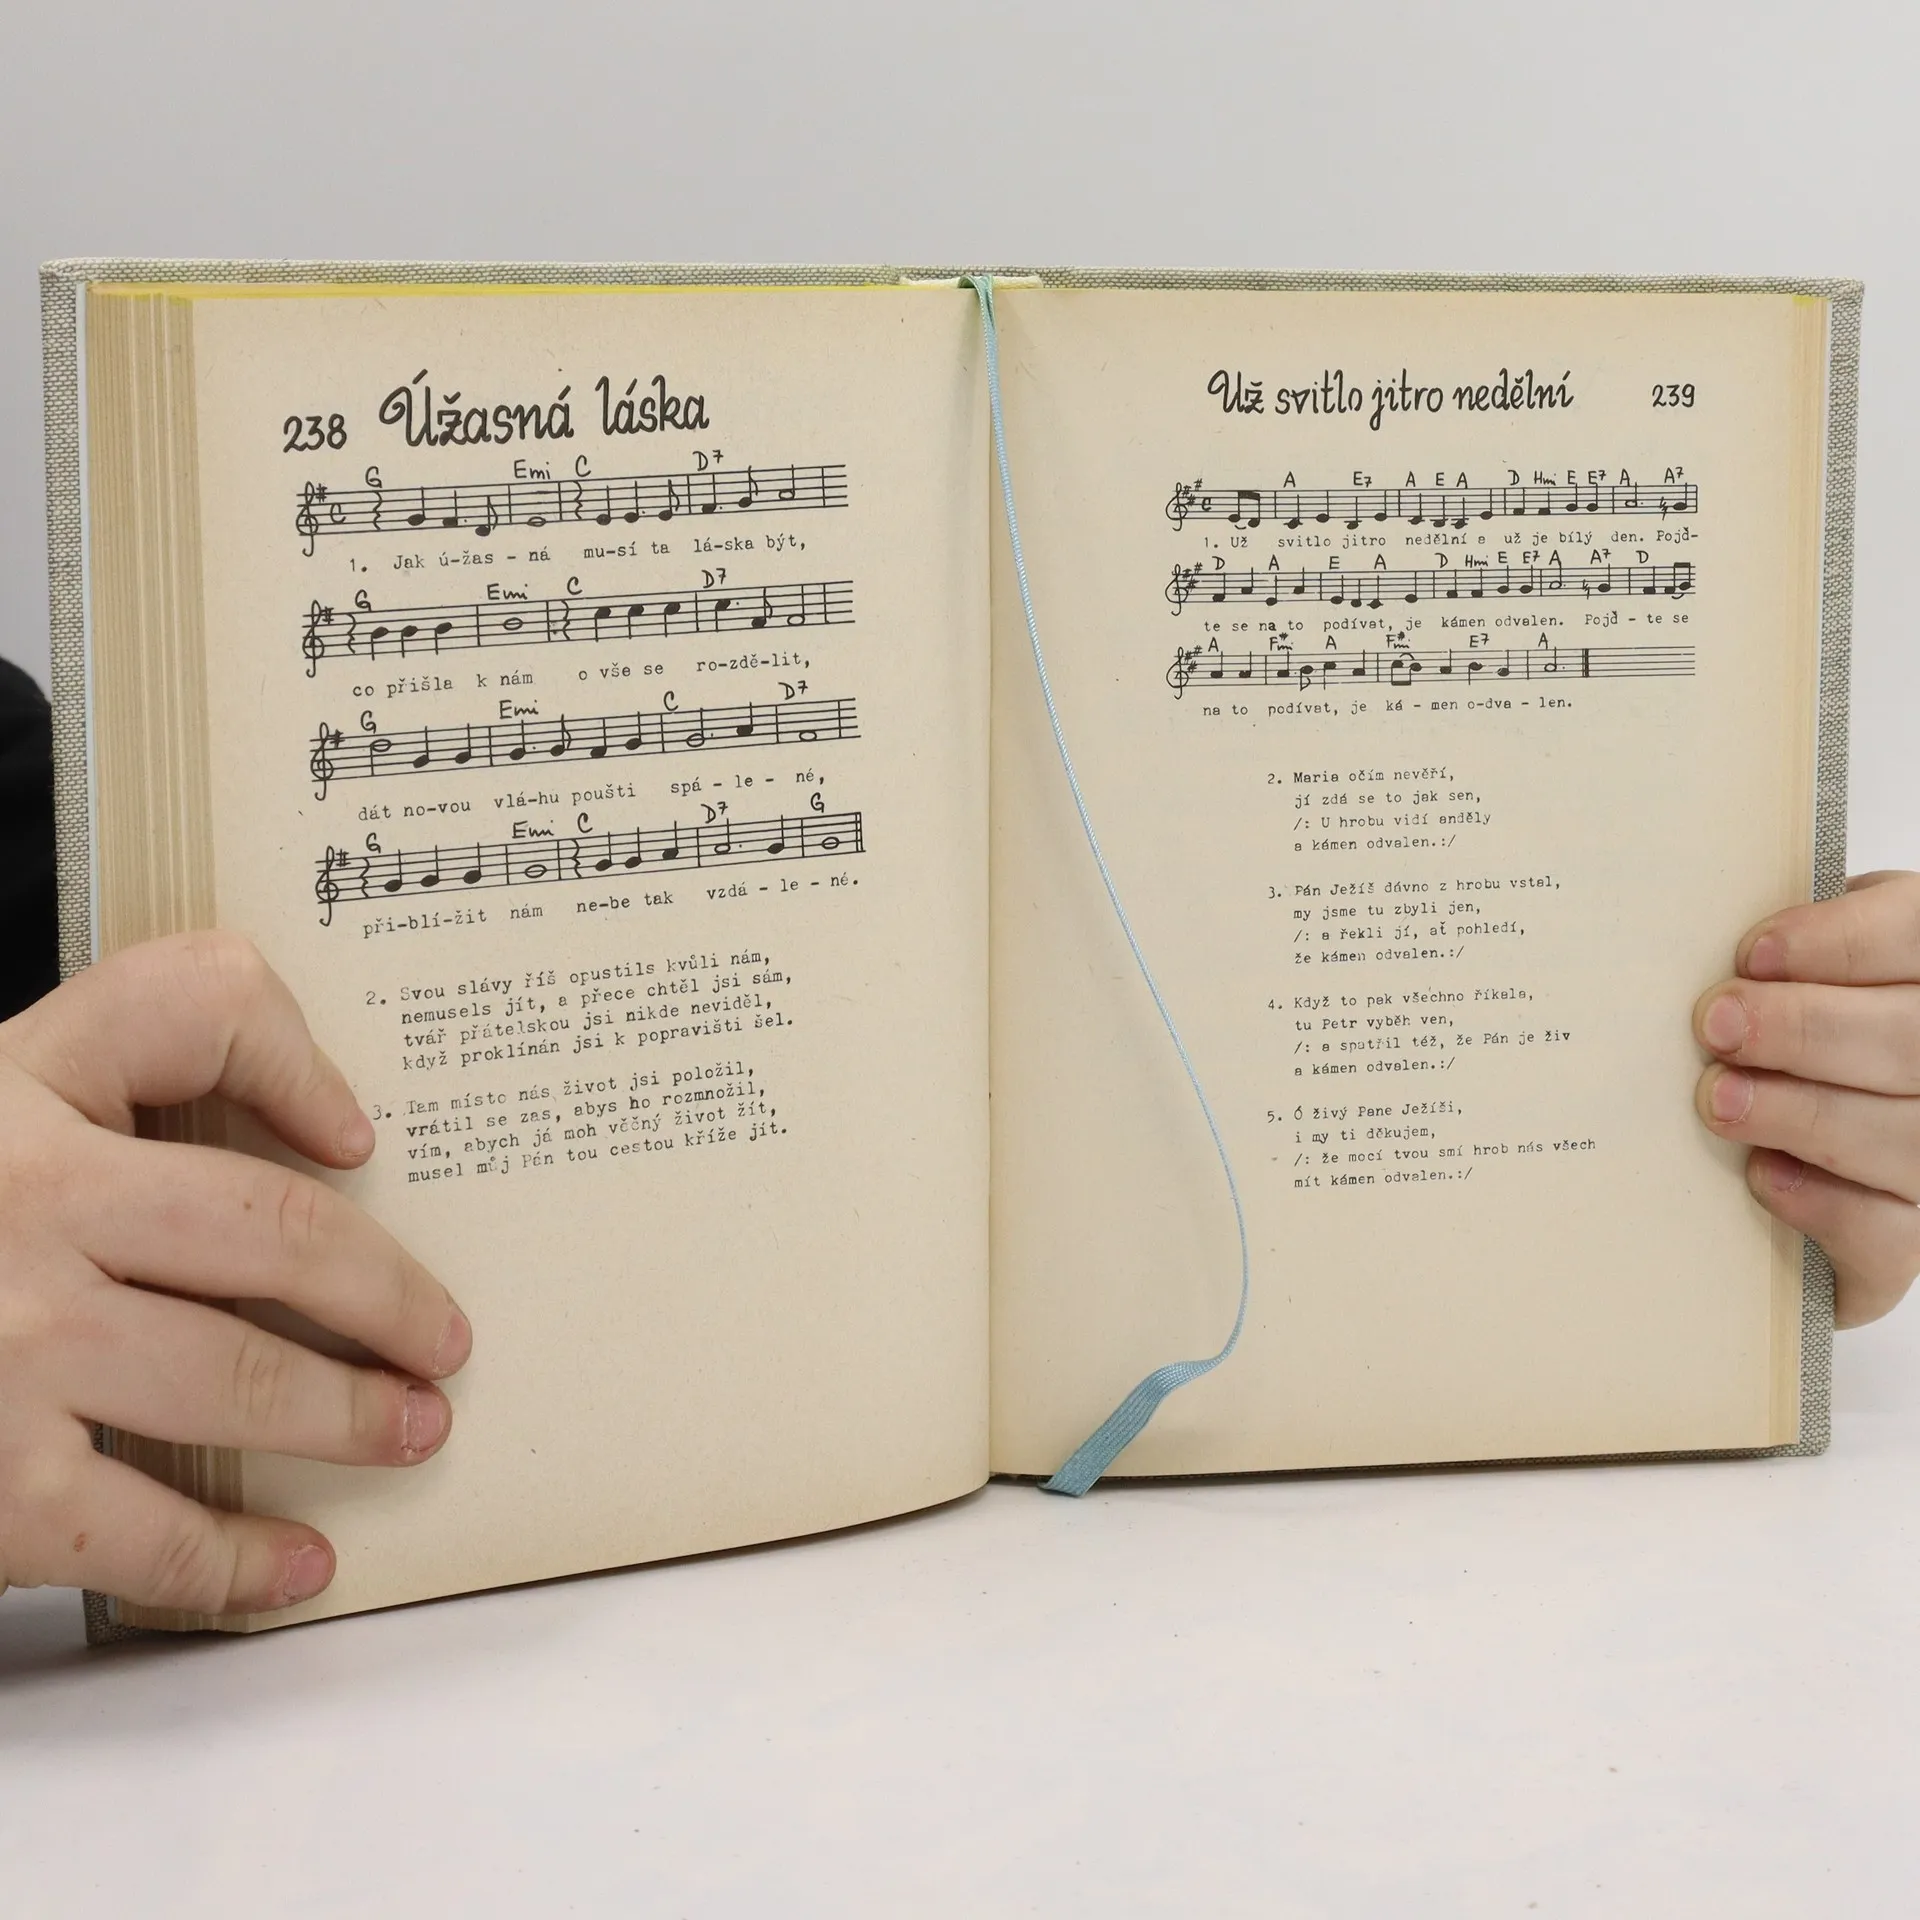 238 Úžasná láska
G Emi C D7
1. Jak ú-žas - ná mu-sí ta lá-ska být,
G Emi C D7
co přišla k nám o vše se ro-zdě-lit,
G Emi C D7
dát no-vou vlá-hu poušti spá - le - né,
G Emi C D7 G
při-blí-žit nám ne-be tak vzdá - le - né.
2. Svou slávy říš opustils kvůli nám,
nemusels jít, a přece chtěl jsi sám,
tvář přátelskou jsi nikde neviděl,
když proklínán jsi k popravišti šel.
3. Tam místo nás život jsi položil,
vrátil se zas, abys ho rozmnožil,
vím, abych já moh věčný život žít,
musel můj Pán tou cestou kříže jít.
Už svitlo jitro nedělní 239
A E7 A E A D Hmi E E7 A A7
1. Už svitlo jitro nedělní a už je bílý den. Pojď-
D A E A D Hmi E E7 A A7 D
te se na to podívat, je kámen odvalen. Pojď - te se
A F#mi A F#mi E7 A
na to podívat, je ká - men o-dva - len.
2. Maria očím nevěří,
jí zdá se to jak sen,
/: U hrobu vidí anděly
a kámen odvalen.:/
3. Pán Ježíš dávno z hrobu vstal,
my jsme tu zbyli jen,
/: a řekli jí, ať pohledí,
že kámen odvalen.:/
4. Když to pak všechno říkala,
tu Petr vyběh ven,
/: a spatřil též, že Pán je živ
a kámen odvalen.:/
5. Ó živý Pane Ježíši,
i my ti děkujem,
/: že mocí tvou smí hrob nás všech
mít kámen odvalen.:/